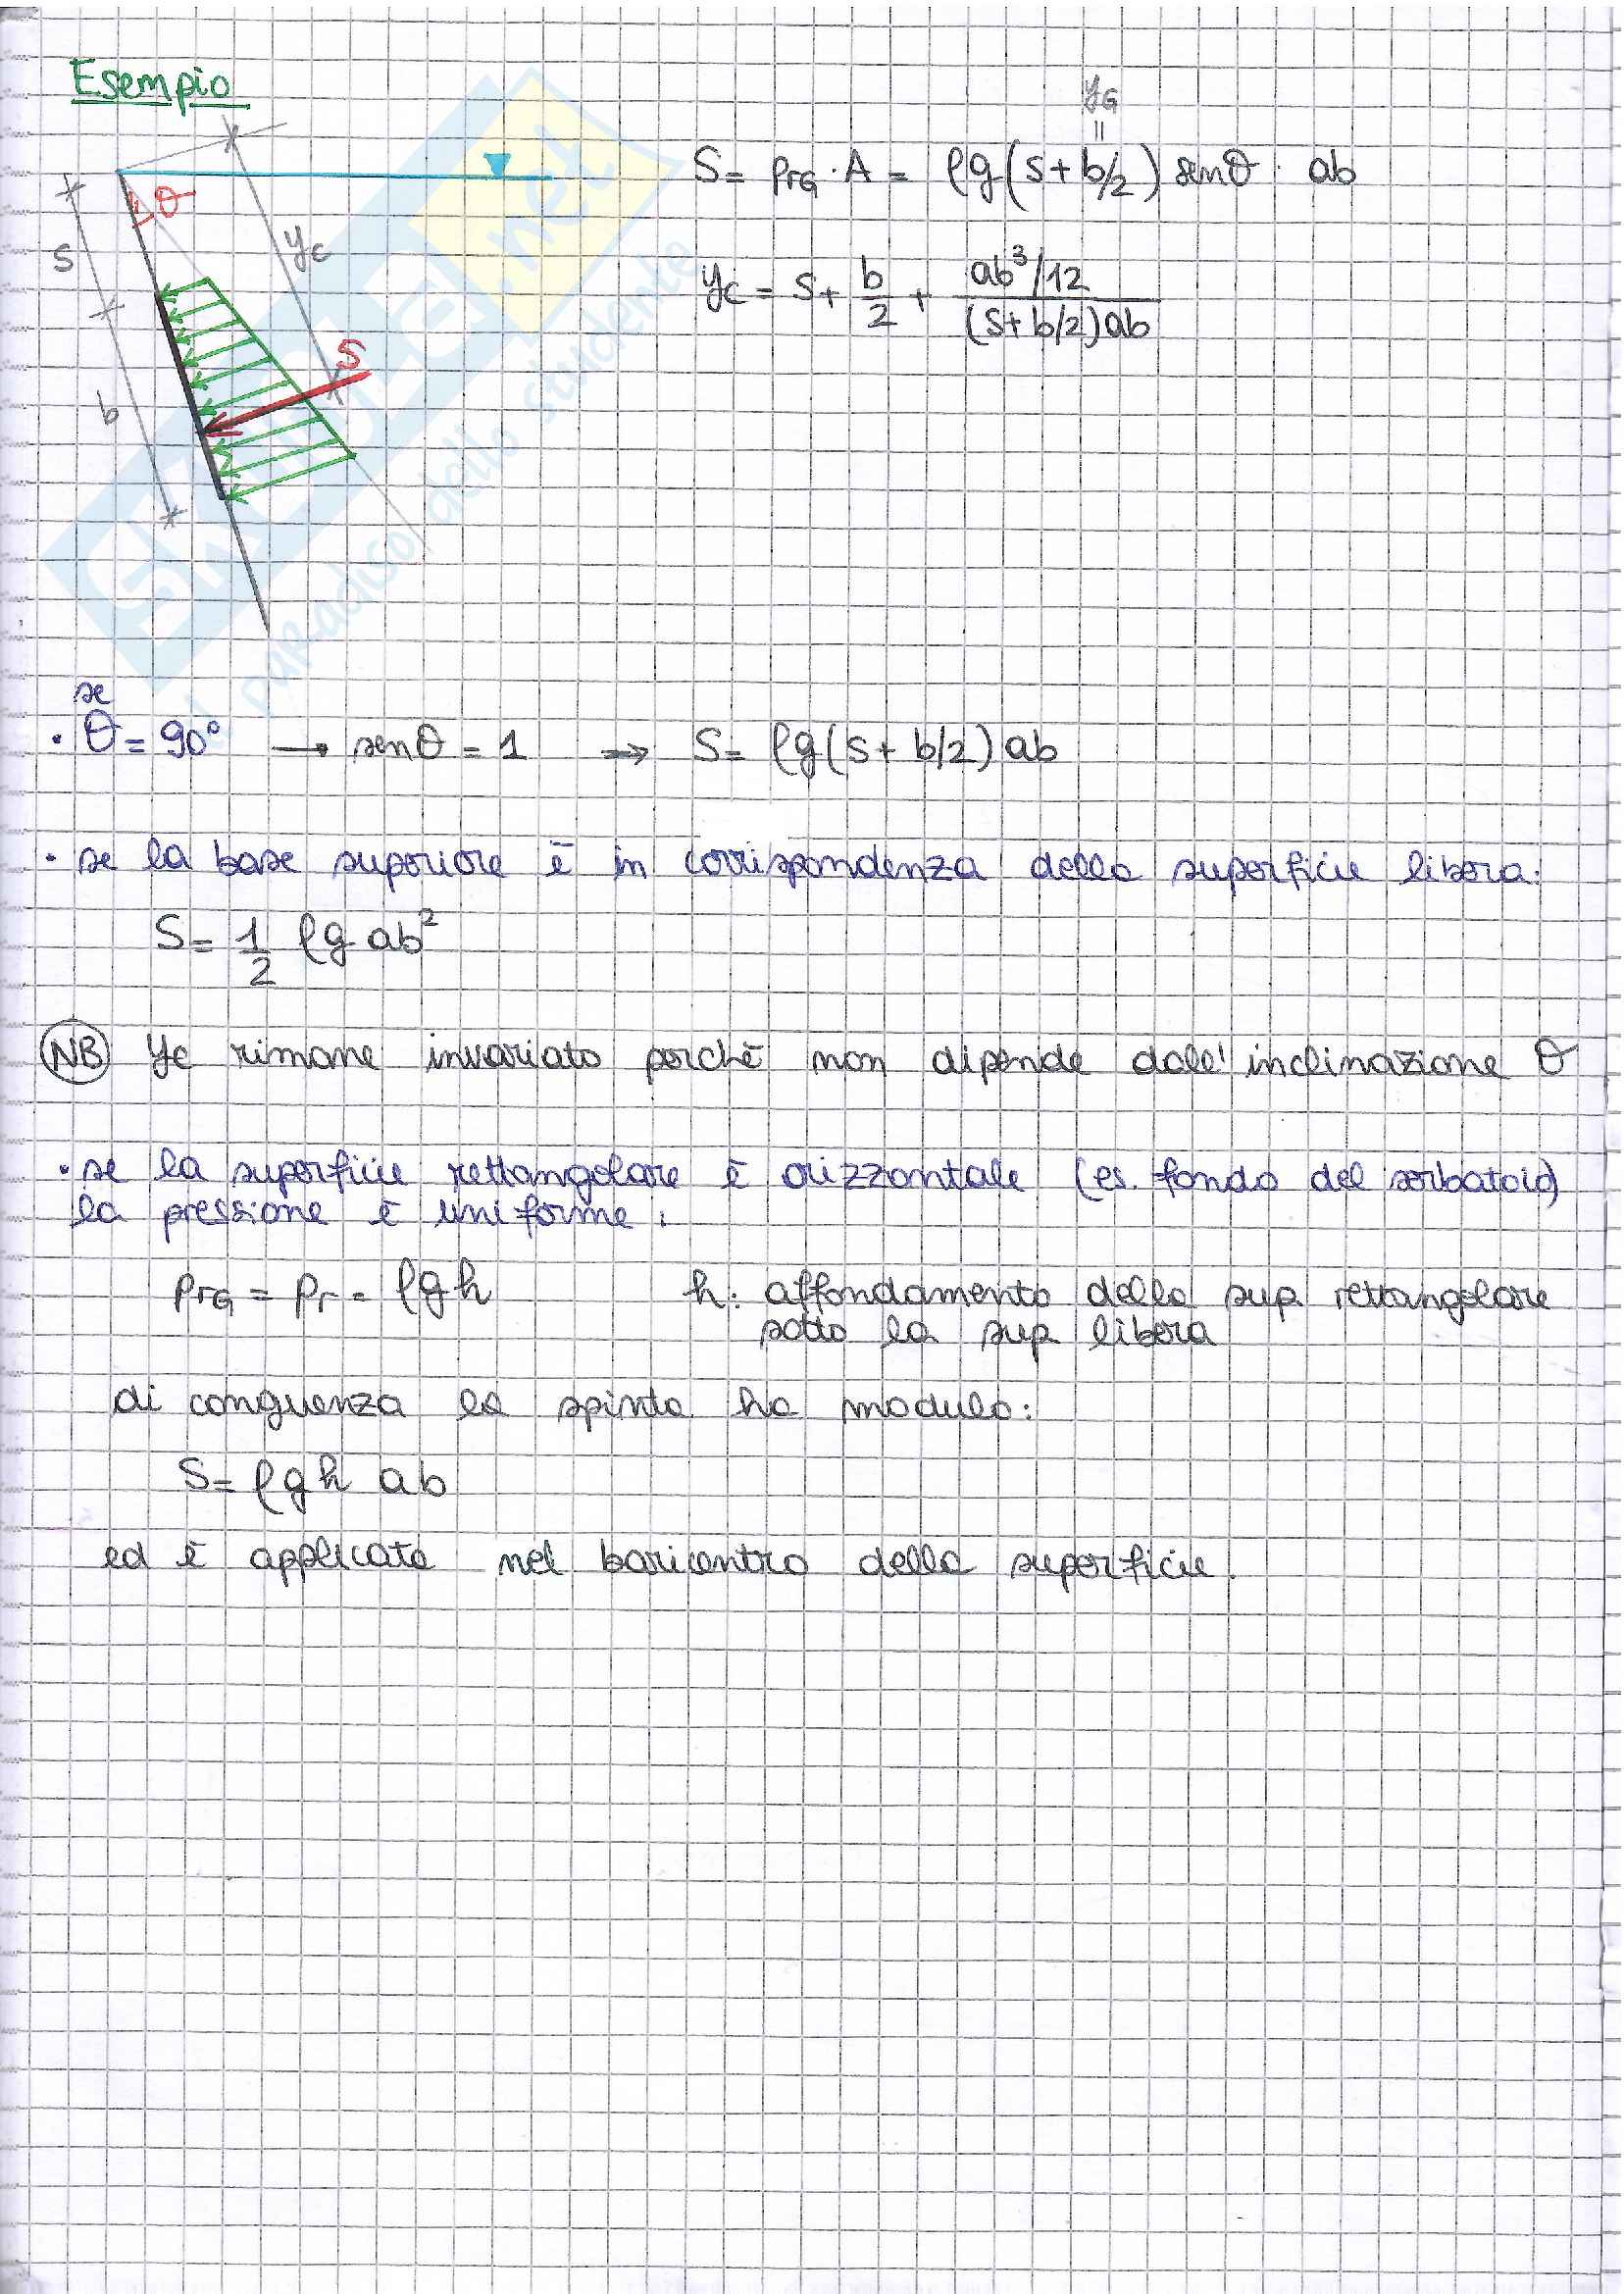 Esempio
yG
=
S = prG · A = ρg(s + b/2) senθ · ab
θ
s
yc
yc = s + b/2 + (ab³/12)/((s + b/2)ab)
S
b
SKUOLA.net
paradiso dello studente
se
· θ = 90° → senθ = 1 ⇒ S = ρg(s + b/2) ab
· se la base superiore è in corrispondenza della superficie libera:
S = 1/2 ρg ab²
NB yc rimane invariato perchè non dipende dall'inclinazione θ
· se la superficie rettangolare è orizzontale (es. fondo del serbatoio)
la pressione è uniforme:
prG = pr = ρgh h: affondamento della sup. rettangolare
sotto la sup libera
di conguenza la spinta ha modulo:
S = ρgh ab
ed è applicata nel baricentro della superficie.